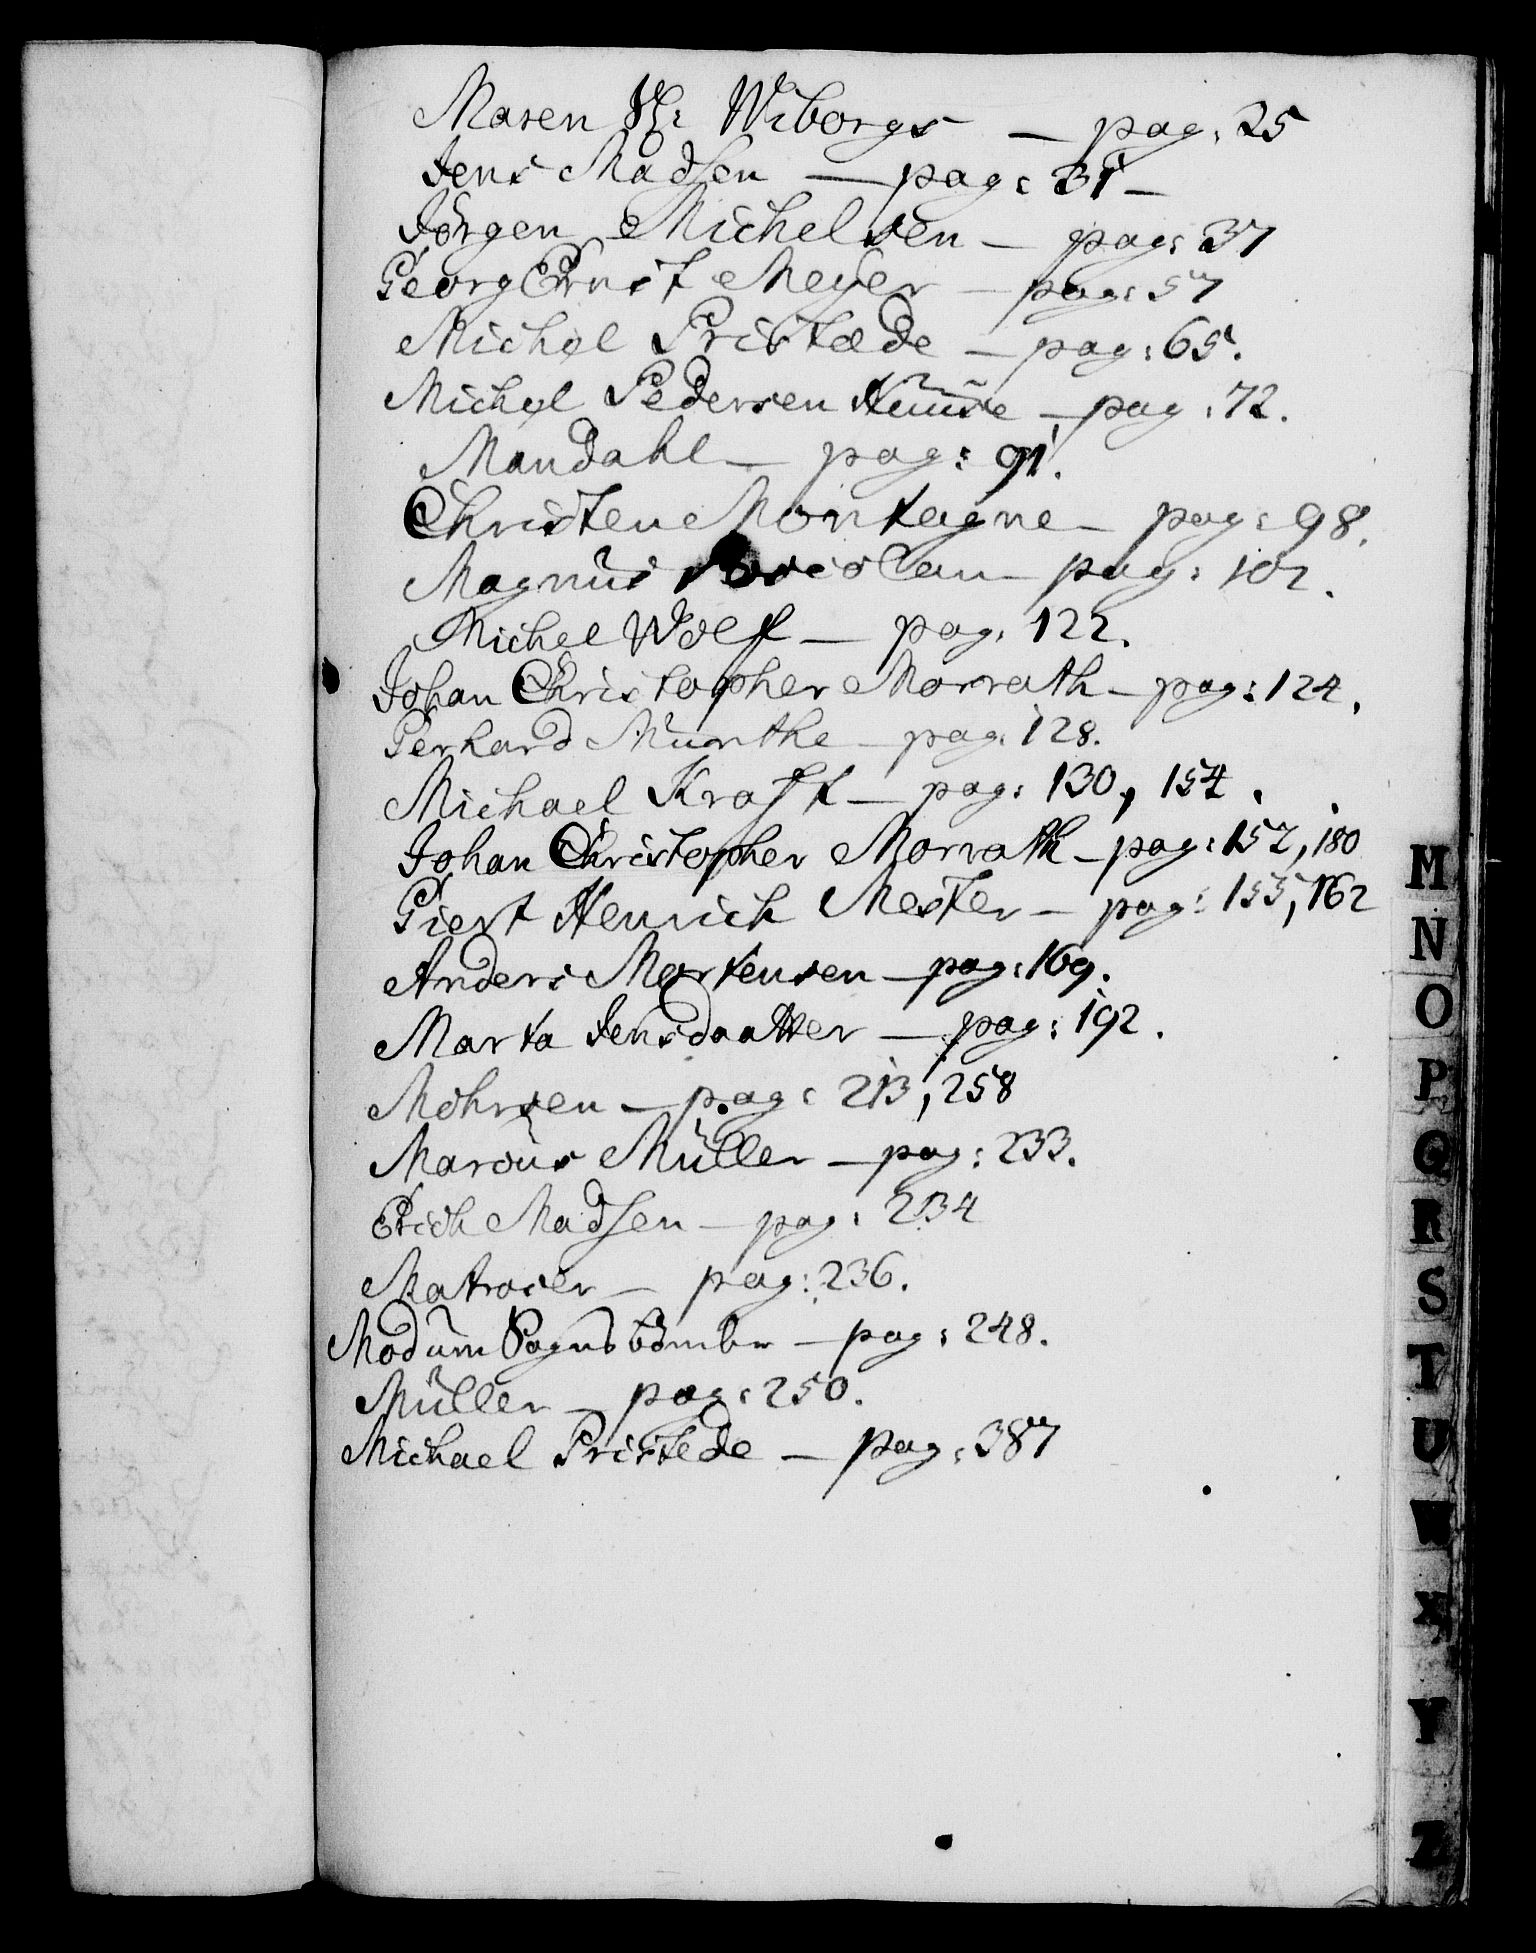 Maren Sl: Wiborgs — pag: 25
Jens Madsen — pag: 31 —
Jörgen Michelsen — pag: 37
Georg Ernst Meyer — pag: 57
Michel Pristæde — pag: 65.
Michel Pedersen Huuse — pag: 72.
Mandahl — pag: 91.
Christen Montagne — pag: 98.
Magnus — pag: 102.
Michel Wolf — pag: 122.
Johan Christopher Morrath — pag: 124.
Gerhard Munthe — pag: 128.
Michael Kraft — pag: 130, 154.
Johan Christopher Morrath — pag: 152, 180
Giert Henrich Mester — pag: 155, 162
Anders Mortensen — pag: 169.
Marta Jensdaatter — pag: 192.
Möhrsen — pag: 213, 258
Marcus Müller — pag: 233.
Erich Madsen — pag: 234
Matroser — pag: 236.
Modum Sogns — pag: 248.
Müller — pag: 250.
Michael Pristede — pag: 387
M
N
O
P
Q
R
S
T
U
W
X
Y
Z